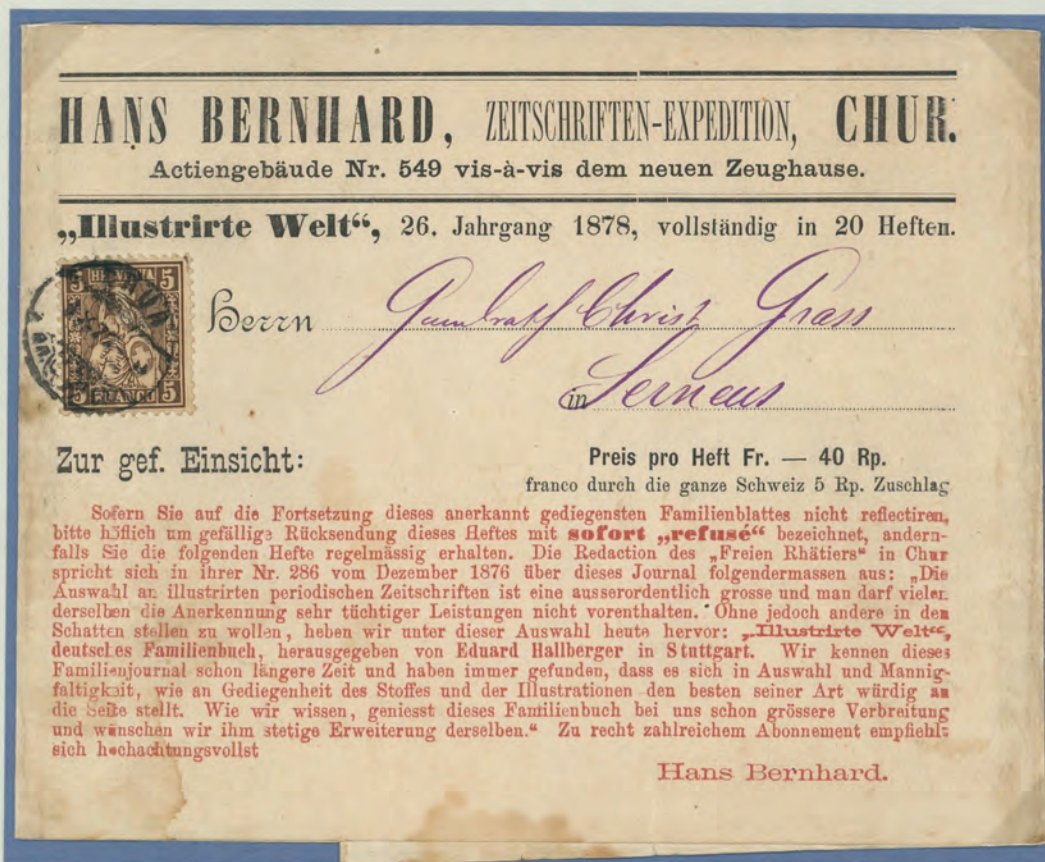 HANS BERNHARD, ZEITSCHRIFTEN-EXPEDITION, CHUR.
Actiengebäude Nr. 549 vis-à-vis dem neuen Zeughause.
„Illustrirte Welt“, 26. Jahrgang 1878, vollständig in 20 Heften.
5 HELVETIA 5
Herrn Christ Grass
5 FRANCO 5
in Serneus
Zur gef. Einsicht:
Preis pro Heft Fr. — 40 Rp.
franco durch die ganze Schweiz 5 Rp. Zuschlag
Sofern Sie auf die Fortsetzung dieses anerkannt gediegensten Familienblattes nicht reflectiren,
bitte höflich um gefällige Rücksendung dieses Heftes mit sofort „refusé“ bezeichnet, andern-
falls Sie die folgenden Hefte regelmässig erhalten. Die Redaction des „Freien Rhätiers“ in Chur
spricht sich in ihrer Nr. 286 vom Dezember 1876 über dieses Journal folgendermassen aus: „Die
Auswahl an illustrirten periodischen Zeitschriften ist eine ausserordentlich grosse und man darf vielen
derselben die Anerkennung sehr tüchtiger Leistungen nicht vorenthalten. Ohne jedoch andere in den
Schatten stellen zu wollen, heben wir unter dieser Auswahl heute hervor: „Illustrirte Welt“,
deutsches Familienbuch, herausgegeben von Eduard Hallberger in Stuttgart. Wir kennen dieses
Familienjournal schon längere Zeit und haben immer gefunden, dass es sich in Auswahl und Mannig-
faltigkeit, wie an Gediegenheit des Stoffes und der Illustrationen den besten seiner Art würdig an
die Seite stellt. Wie wir wissen, geniesst dieses Familienbuch bei uns schon grössere Verbreitung
und wünschen wir ihm stetige Erweiterung derselben.“ Zu recht zahlreichem Abonnement empfiehlt
sich hochachtungsvollst
Hans Bernhard.